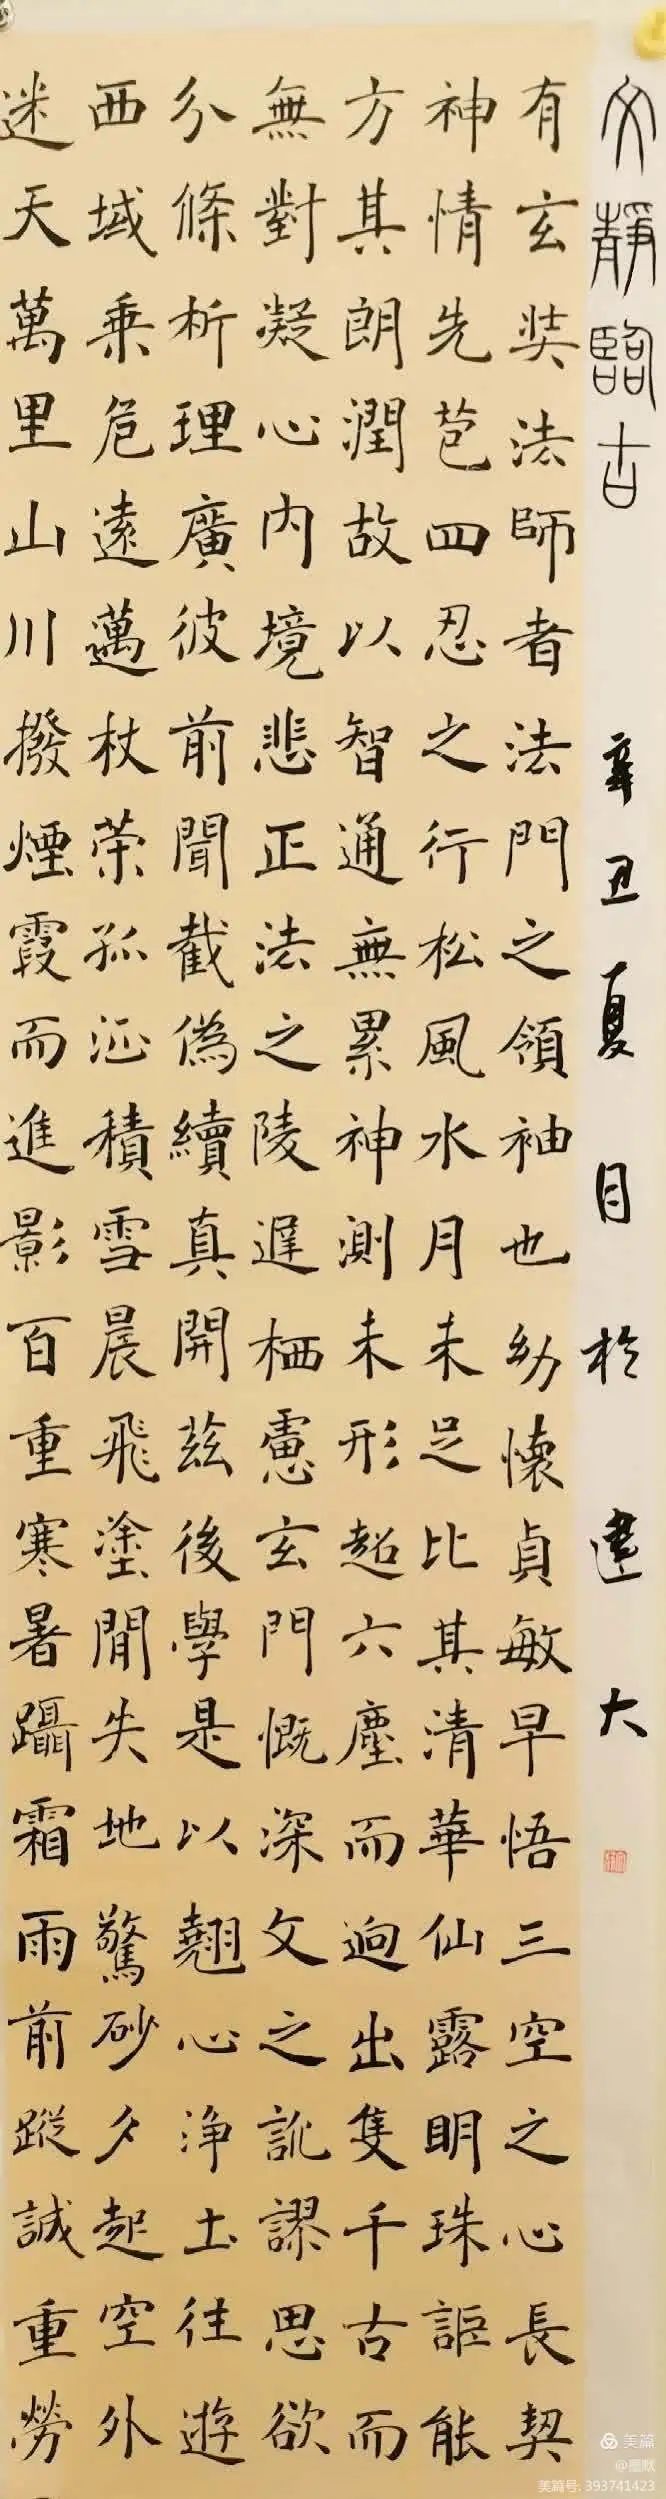 文靜臨古
辛丑夏日於建大
有玄奘法師者法門之領袖也幼懷貞敏早悟三空之心長契
神情先苞四忍之行松風水月未足比其清華仙露明珠詎能
方其朗潤故以智通無累神測未形超六塵而迥出隻千古而
無對凝心內境悲正法之陵遲栖慮玄門慨深文之訛謬思欲
分條析理廣彼前聞截偽續真開茲後學是以翹心淨土往遊
西域乗危遠邁杖策孤征積雪晨飛塗閒失地驚砂夕起空外
迷天萬里山川撥煙霞而進影百重寒暑躡霜雨前蹤誠重勞
美篇
美篇号: 393741423